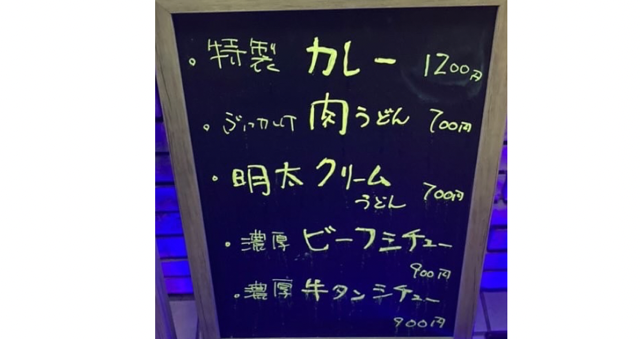 ・特製 カレー 1200円
・ぶっかけ 肉うどん 700円
・明太クリーム
うどん 700円
・濃厚 ビーフシチュー
900円
・濃厚 牛タンシチュー
900円